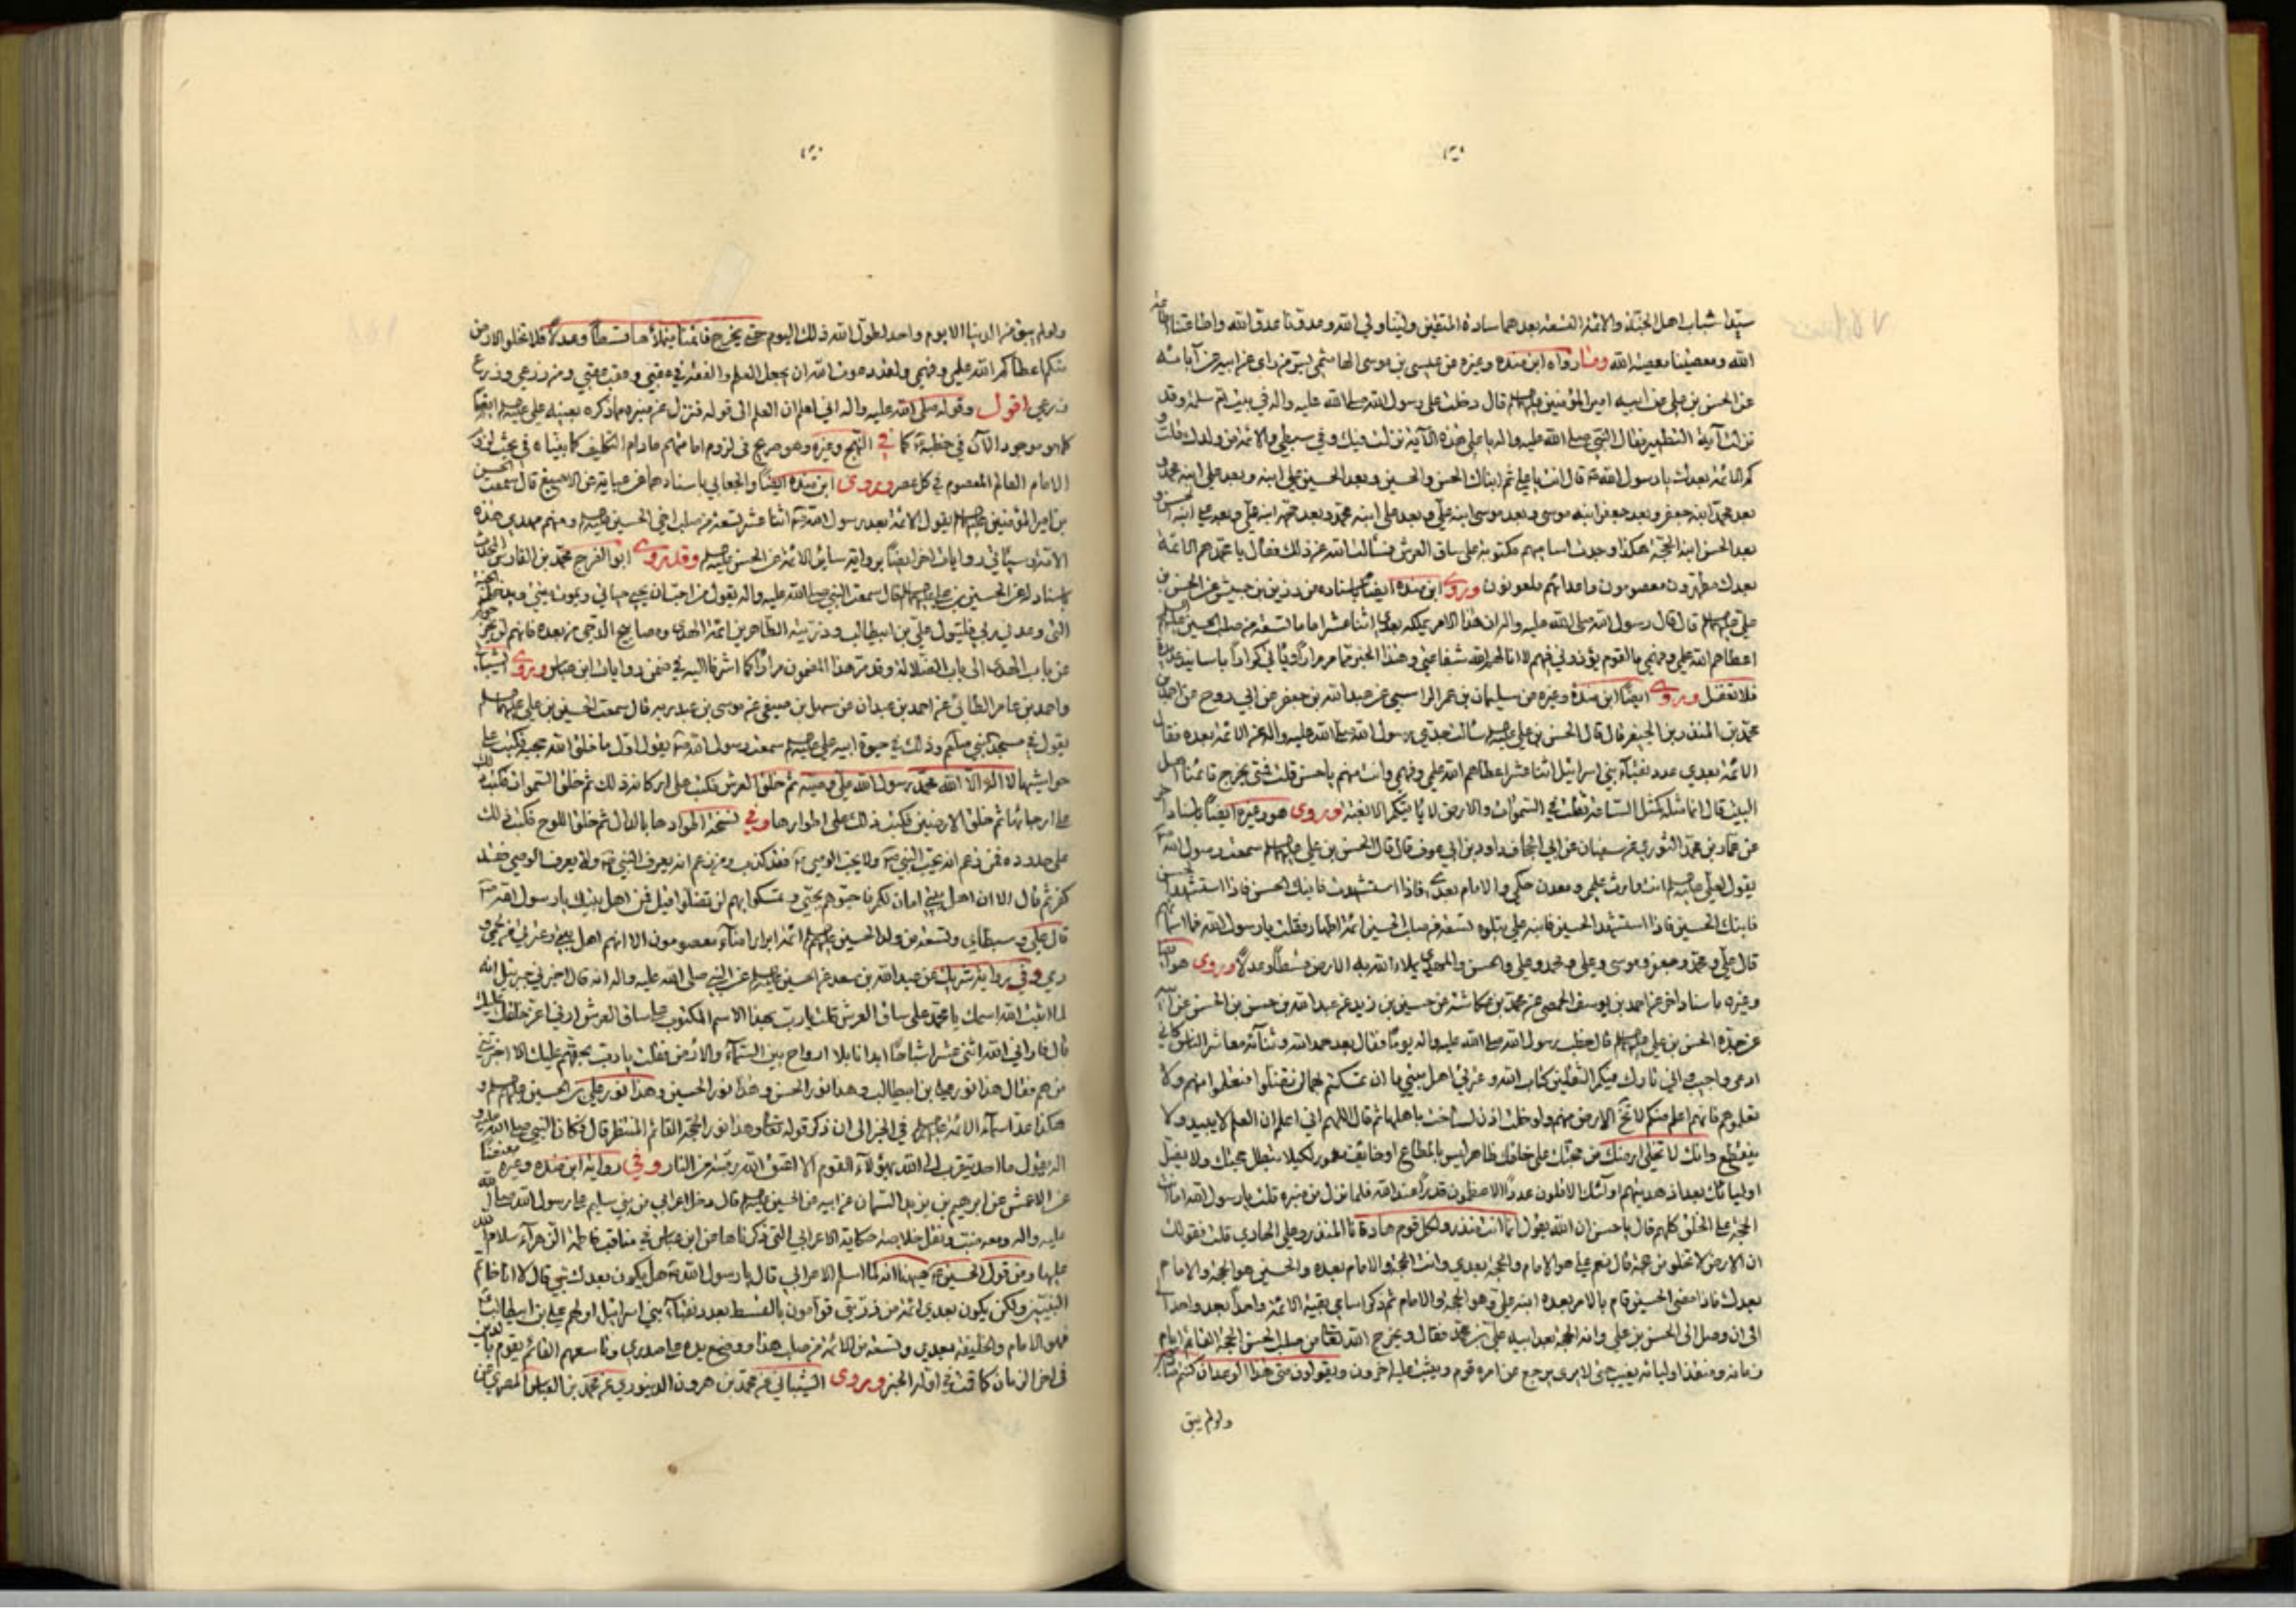 سيدا شباب اهل الجنة والائمة التسعة بعدهما سادة المتقين ولينا ولي الله وعدونا عدو الله وطاعتنا طاعة
الله ومعصيتنا معصية الله ومنها رواه ابن منده وغيره عن عيسى بن موسى الهاشمي بسر من راى عن ابيه عن آبائه
عن الحسين بن علي عن ابيه امير المؤمنين عليهم السلام قال دخلت على رسول الله صلى الله عليه واله في بيت ام سلمة وقد
نزلت آية التطهير فقال النبي صلى الله عليه واله يا علي هذه الآية نزلت فيك وفي سبطي والائمة من ولدك فقلت
كم الائمة بعدك يا رسول الله قال انت يا علي ثم ابناك الحسن والحسين وبعد الحسين علي ابنه وبعد علي ابنه محمد و
بعد محمد ابنه جعفر وبعد جعفر ابنه موسى وبعد موسى ابنه علي وبعد علي ابنه محمد وبعد محمد ابنه علي وبعد علي ابنه الحسن و
بعد الحسن ابنه الحجة هكذا وجدت اساميهم مكتوبة على ساق العرش فسألت الله عن ذلك فقال يا محمد هم الائمة
بعدك مطهرون معصومون واعداؤهم ملعونون وروى ابن منده ايضا باسناده عن زر بن حبيش عن الحسن بن
علي عليهما السلام قال قال رسول الله صلى الله عليه واله ان هذا الامر يملكه بعدي اثنا عشر اماما تسعة من صلب الحسين عليه السلام
اعطاهم الله علمي وفهمي ما لقوم يؤذوني فيهم لا انالهم الله شفاعتي وهذا الخبر مما مر مرارا
فلا تغفل وروى ايضا ابن منده وغيره عن سليمان بن عمر الراسبي عن عبد الله بن جعفر عن ابي روح عن احمد بن
محمد بن المنذر بن الجيفر قال قال الحسن بن علي عليه السلام سألت جدي رسول الله صلى الله عليه واله عن الائمة بعده فقال
الائمة بعدي عدد نقباء بني اسرائيل اثنا عشر اعطاهم الله علمي وفهمي وانت منهم يا حسن قلت فمتى يخرج قائمنا اهل
البيت قال انما مثله كمثل الساعة ثقلت في السموات والارض لا يأتيكم الا بغتة وروى هو وغيره ايضا باسناد آخر
عن عماد بن محمد الثوري عن سفيان عن ابي الجحاف داود بن ابي عوف قال قال الحسن بن علي عليهما السلام سمعت رسول الله
يقول لعلي عليه السلام انت وارث علمي ومعدن حكمي والامام بعدي فاذا استشهدت فابنك الحسن فاذا استشهد الحسن
فابنك الحسين فاذا استشهد الحسين فابنه علي يتلوه تسعة من صلب الحسين ائمة اطهار فقلت يا رسول الله فما اسمائهم
قال علي ومحمد وجعفر وموسى وعلي ومحمد وعلي والحسن والمهدي يملاء الله به الارض قسطا وعدلا وروى هو ايضا
وغيره باسناد اخر عن احمد بن يوسف الحمصي عن محمد بن عكاشة عن حسين بن زيد عن عبد الله بن حسن بن الحسن عن ابيه
عن جده الحسن بن علي عليهما السلام قال خطب رسول الله صلى الله عليه واله يوما فقال بعد حمد الله وثنائه معاشر الناس كاني
ادعى واجيب واني تارك فيكم الثقلين كتاب الله وعترتي اهل بيتي ما ان تمسكتم بهما لن تضلوا فتعلموا منهم ولا
تعلموهم فانهم اعلم منكم لا تخلو الارض منهم ولو خلت اذن لساخت باهلها ثم قال اللهم اني اعلم ان العلم لا يبيد ولا
ينقطع وانك لا تخلي ارضك من حجتك على خلقك ظاهر ليس بالمطاع او خائف مغمور لكيلا تبطل حجتك ولا يضل
اوليائك بعد اذ هديتهم اولئك الاقلون عددا الاعظمون قدرا عند الله فلما نزل من منبره قلت يا رسول الله اما انت
الحجة على الخلق كلهم قال يا حسن ان الله يقول انما انت منذر ولكل قوم هاد فانا المنذر وعلي الهادي قلت فقولك
ان الارض لا تخلو من حجة قال نعم علي هو الامام والحجة بعدي وانت الحجة والامام بعده والحسين هو الحجة والامام
بعدك فاذا مضى الحسين قام بالامر بعده ابنه علي وهو الحجة والامام ثم ذكر اسامي بقية الائمة واحدا بعد واحد
الى ان وصل الى الحسن بن علي وانه الحجة بعد ابيه علي بن محمد فقال ويخرج الله تعالى من صلب الحسن الحجة القائم امام
زمانه ومنقذ اوليائه يغيب حتى لا يرى يرجع عن امره قوم ويثبت عليه اخرون ويقولون متى هذا الوعد ان كنتم صادقين
ولو لم يبق
ولو لم يبق من الدنيا الا يوم واحد لطول الله ذلك اليوم حتى يخرج قائمنا فيملأها قسطا وعدلا فلا تخلو الارض
منكم اعطاكم الله علمي وفهمي ولقد دعوت الله ان يجعل العلم والفقه في عقبي وعقب عقبي ومن زرعي وزرع
زرعي اقول وقوله صلى الله عليه واله اني اعلم ان العلم الى قوله فنزل عن منبره مما ذكره بعينه علي عليه السلام ايضا
كما هو موجود الآن في خطبة كما في النهج وغيره وهو صريح في لزوم امامتهم ما دام التكليف كما بيناه في بحث لزوم
الامام العالم المعصوم في كل عصر وروى ابن منده ايضا والجعابي باسنادهما عن عباية عن الاصبغ قال سمعت الحسن
بن امير المؤمنين عليهما السلام يقول الائمة بعد رسول الله اثنا عشر تسعة من صلب اخي الحسين عليه السلام ومنهم مهدي هذه
الامة وسيأتي روايات اخر ايضا برواية سائر الائمة عن الحسن عليه السلام وقد روى ابو الفرج محمد بن
باسناد له عن الحسين بن علي عليهما السلام قال سمعت النبي صلى الله عليه واله يقول من احب ان يحيى حياتي ويموت ميتتي ويدخل الجنة
التي وعدني ربي فليتول علي بن ابيطالب وذريته الطاهرين ائمة الهدى ومصابيح الدجى من بعده فانهم لن يخرجوكم
من باب الهدى الى باب الضلالة وقد مر هذا المضمون مرارا كما اشرنا اليه في ضمن روايات ابن عباس وروى الشيباني
واحمد بن عامر الطائي عن احمد بن عبدان عن سهل بن صيفي عن موسى بن عبد ربه قال سمعت الحسين بن علي عليهما السلام
يقول في مسجد النبي صلعم وذلك في حيوة ابيه علي عليه السلام سمعت رسول الله يقول اول ما خلق الله حجبه فكتب على
حواشيها لا اله الا الله محمد رسول الله علي وصيه ثم خلق العرش فكتب على اركانه ذلك ثم خلق السموات فكتب ذلك
على ارجائها ثم خلق الارضين فكتب ذلك على اطوارها وفي نسخة اطوادها بالدال ثم خلق اللوح فكتب ذلك
على حدوده فمن زعم انه يحب النبي ولا يحب الوصي فقد كذب ومن زعم انه يعرف النبي ولا يعرف الوصي فقد
كفر ثم قال الا ان اهل بيتي امان لكم فاحبوهم بحبي وتمسكوا بهم لن تضلوا قيل فمن اهل بيتك يا رسول الله
قال علي وسبطاي وتسعة من ولد الحسين عليهم السلام ائمة ابرار امناء معصومون الا انهم اهل بيتي وعترتي من لحمي و
دمي وفي رواية شريك عن عبد الله بن سعد عن الحسين عليه السلام عن النبي صلى الله عليه واله انه قال اخبرني جبرئيل انه
لما اثبت الله اسمك يا محمد على ساق العرش قلت يا رب هذا الاسم المكتوب على ساق العرش ارني اعز خلقك عليك
قال فاراني الله اثنى عشر اشباحا ابدانا بلا ارواح بين السماء والارض فقلت يا رب بحقهم عليك الا اخبرتني
من هم فقال هذا نور علي بن ابيطالب وهذا نور الحسن وهذا نور الحسين وهذا نور علي بن الحسين عليهم السلام و
هكذا عد اسماء الائمة عليهم السلام في الخبر الى ان ذكر قوله تعالى وهذا نور الحجة القائم المنتظر قال فكان النبي صلى الله عليه و
اله يقول ما احد يتقرب الى الله بهؤلاء القوم الا اعتق الله رقبته من النار وفي رواية ابن منده وغيره
عن الاعمش عن ابرهيم بن يزيد السمان عن ابيه عن الحسين عليه السلام قال دخل اعرابي من بني سليم على رسول الله صلى الله
عليه واله ومعه ضب ونقل خلاصة حكاية الاعرابي التي ذكرناها عن ابن عباس في مناقب فاطمة الزهراء سلام الله
عليها ومن قول الحسين هيهنا انه لما اسلم الاعرابي قال يا رسول الله هل يكون بعدك نبي قال لا انا خاتم
النبيين ولكن يكون بعدي ائمة من ذريتي قوامون بالقسط بعدد نقباء بني اسرائيل اولهم علي بن ابيطالب
فهو الامام والخليفة بعدي وتسعة من الائمة من صلب هذا ووضع يده على صدري وتاسعهم القائم يقوم بالدين
في اخر الزمان كما قمت في اوله الخبر وروى الشيباني عن محمد بن هرون الدينوري عن محمد بن العباس المصري عن